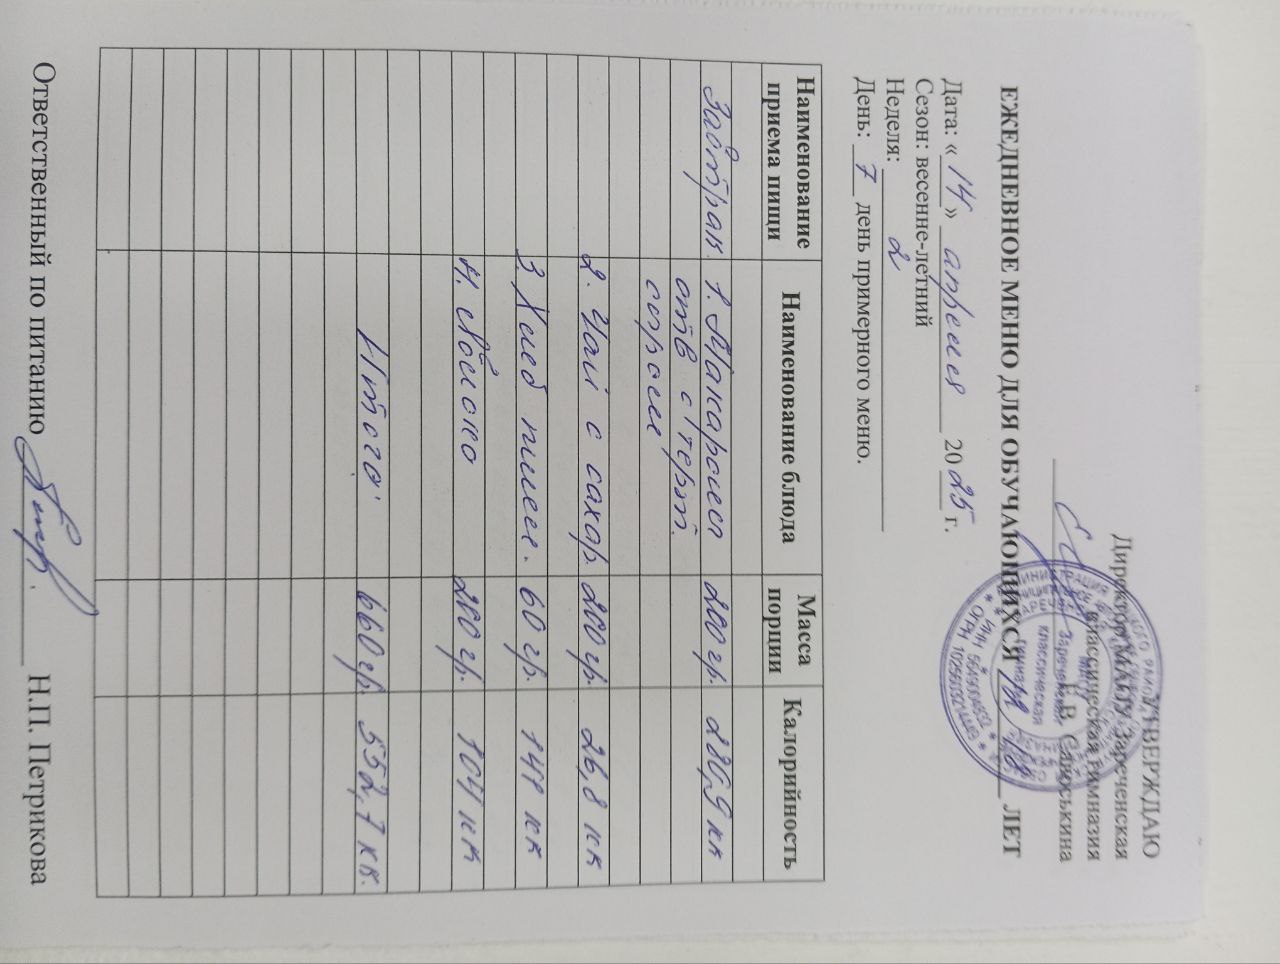 УТВЕРЖДАЮ
Директор МАОУ Зареченская
классическая гимназия
Е.В. Сапоськина
ЕЖЕДНЕВНОЕ МЕНЮ ДЛЯ ОБУЧАЮЩИХСЯ 12-18 ЛЕТ
Дата: « 14 » апреля 2025 г.
Сезон: весенне-летний
Неделя: 2
День: 7 день примерного меню.
Наименование приема пищи Наименование блюда Масса порции Калорийность
Завтрак. 1. Макароны 200 гр. 280,9 кк
отв с терт.
сыром
2. Чай с сахар. 200 гр. 26,8 кк
3. Хлеб пшен. 60 гр. 141 кк
4. Яблоко 200 гр. 104 кк
Итого: 660 гр. 552,7 кк.
Ответственный по питанию Н.П. Петрикова